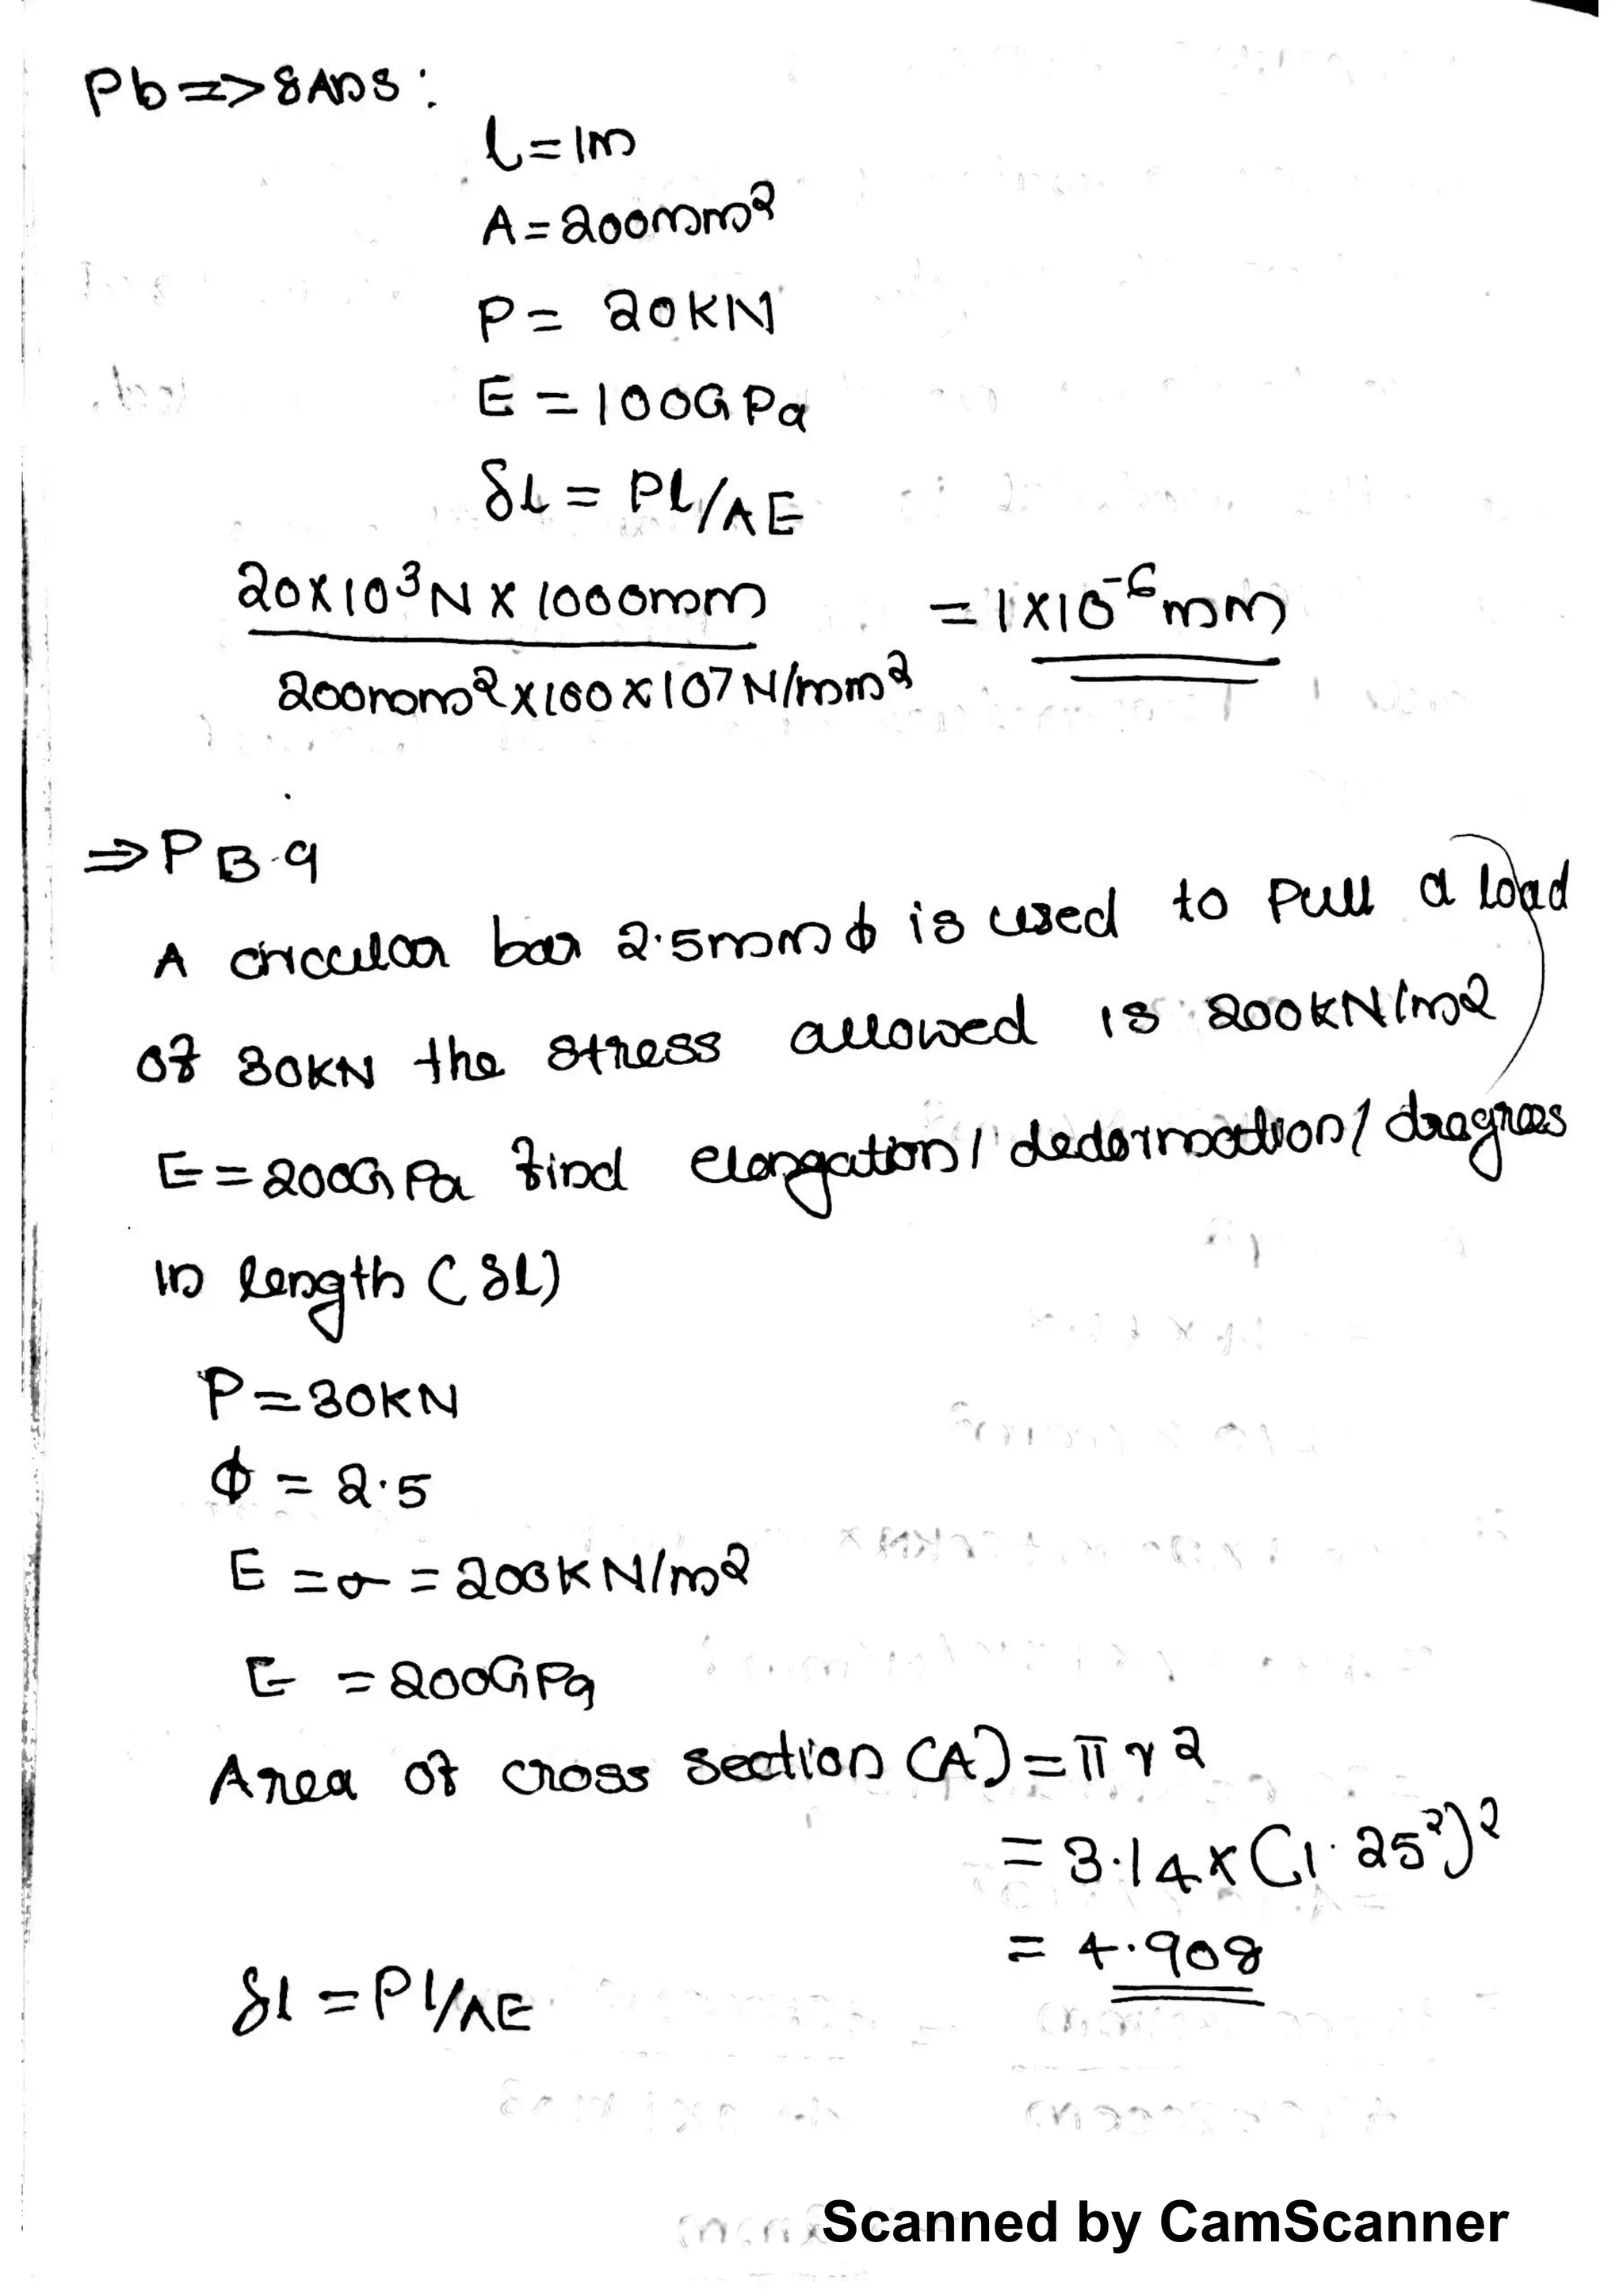 Pb=>8Ans:
l=1m
A=200mm²
P= 20KN
E =100GPa
δl = Pl/AE
20X10³N X 1000mm
= 1X10⁻⁶mm
200mm²X100X107N/mm²
⇒PB.9
A circular bar 2.5mmϕ is used to Pull a load
of 30KN the stress allowed is 200KN/m2
E=200GPa find elongation/deformation/
in length (δl)
P=30KN
ϕ = 2.5
E =σ =200KN/m2
E =200GPa
Area of cross section (A)=π r 2
=3.14x(1.25²)²
= 4.908
δl =Pl/AE
Scanned by CamScanner